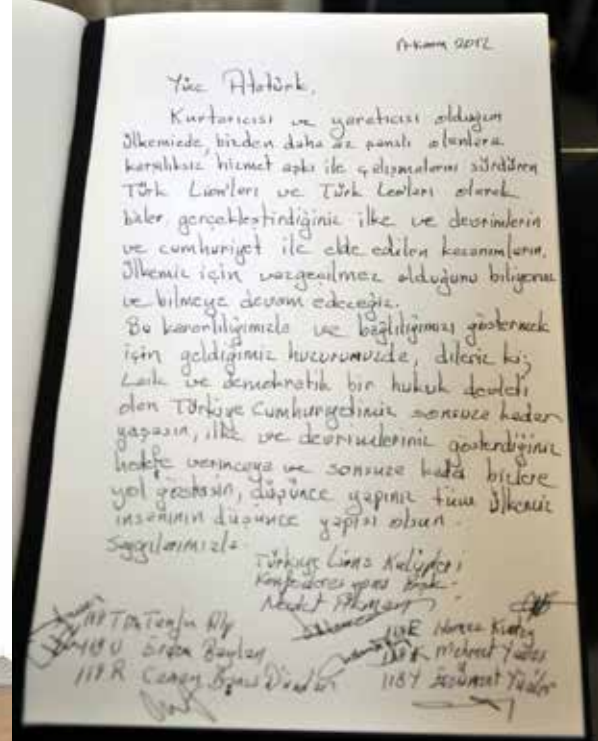 Kasım 2012
Yüce Atatürk,
Kurtarıcısı ve yaratıcısı olduğun
Ülkemizde, bizden daha az şanslı olanlara
karşılıksız hizmet aşkı ile çalışmalarını sürdüren
Türk Lion'ları ve Türk Leo'ları olarak
bizler gerçekleştirdiğiniz ilke ve devrimlerin
ve cumhuriyet ile elde edilen kazanımların,
Ülkemiz için vazgeçilmez olduğunu biliyoruz
ve bilmeye devam edeceğiz.
Bu kararlılığımızla ve bağlılığımızı göstermek
için geldiğimiz huzurunuzda, dileriz ki;
Laik ve demokratik bir hukuk devleti
olan Türkiye Cumhuriyetimiz sonsuza kadar
yaşasın, ilke ve devrimleriniz gösterdiğiniz
hedefe varıncaya ve sonsuza kadar bizlere
yol göstersin, düşünce yapınız tüm Ülkemiz
insanının düşünce yapısı olsun.
Saygılarımızla.
Türkiye Lions Kulüpleri
Konfederasyonu Başk.
Nevdet
118 T Dr. Tanju
118 U Erden
118 R Canan
118 E
118 K Mehmet
118 Y